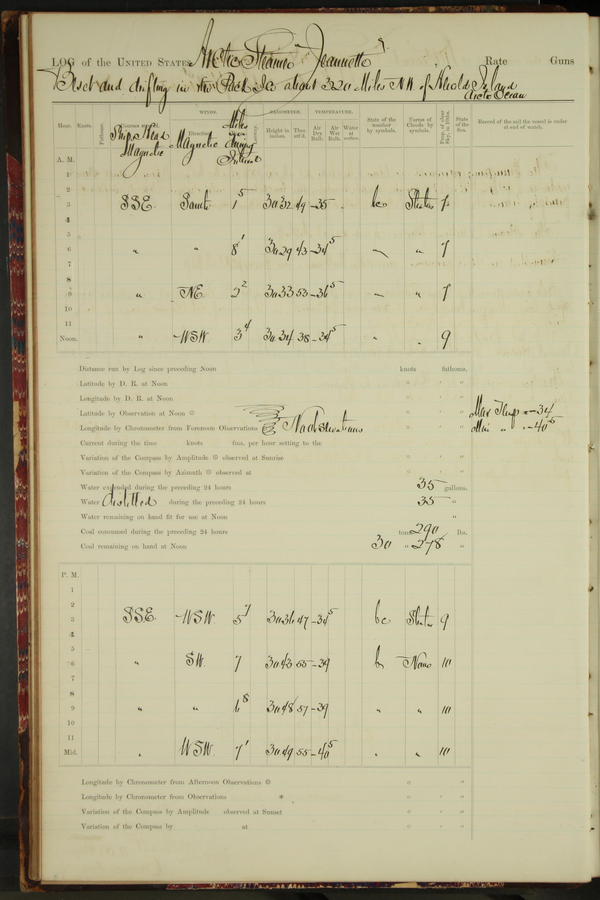 LOG of the UNITED STATES Arctic Steamer "Jeannette" Rate Guns
Beset and drifting in the Pack Ice about 320 Miles NW of Herald Island
Arctic Ocean
WINDS. BAROMETER. TEMPERATURE.
Hour. Knots. Fathoms. Ship's Head Magnetic Direction Magnetic Miles during Interval Height in inches. Ther. att'd. Air Dry Bulb. Air Wet Bulb. Water at surface. State of the weather by symbols. Forms of Clouds by symbols. State of the Sea. Record of the sail the vessel is under at end of watch.
A. M.
1
2
3 SSE South 1 5 30 32 49 -35 bc Stratus 7
4
5
6 " " 8 1 30 29 43 -34 5 " 7
7
8
9 " NE 2 2 30 33 53 -36 5 " 7
10
11
Noon. " WSW 3 4 30 34 38 -34 5 " " 9
Distance run by Log since preceding Noon knots fathoms.
Latitude by D. R. at Noon
Longitude by D. R. at Noon
Latitude by Observation at Noon Max Temp -34
Longitude by Chronometer from Forenoon Observations No observations Min " -40 5
Current during the time knots fms. per hour setting to the
Variation of the Compass by Amplitude observed at Sunrise
Variation of the Compass by Azimuth observed at
Water expended during the preceding 24 hours 35 gallons.
Water distilled during the preceding 24 hours 35 "
Water remaining on hand fit for use at Noon "
Coal consumed during the preceding 24 hours tons 290 lbs.
Coal remaining on hand at Noon 30 " 278 "
P. M.
1
2
3 SSE WSW 5 7 30 36 47 -34 5 bc Stratus 9
4
5
6 " SW 7 30 43 55 -39 b None 10
7
8
9 " " 6 8 30 48 57 -39 " " 10
10
11
Mid. " WSW 7 1 30 49 55 -40 5 " " 10
Longitude by Chronometer from Afternoon Observations
Longitude by Chronometer from Observations *
Variation of the Compass by Amplitude observed at Sunset
Variation of the Compass by at